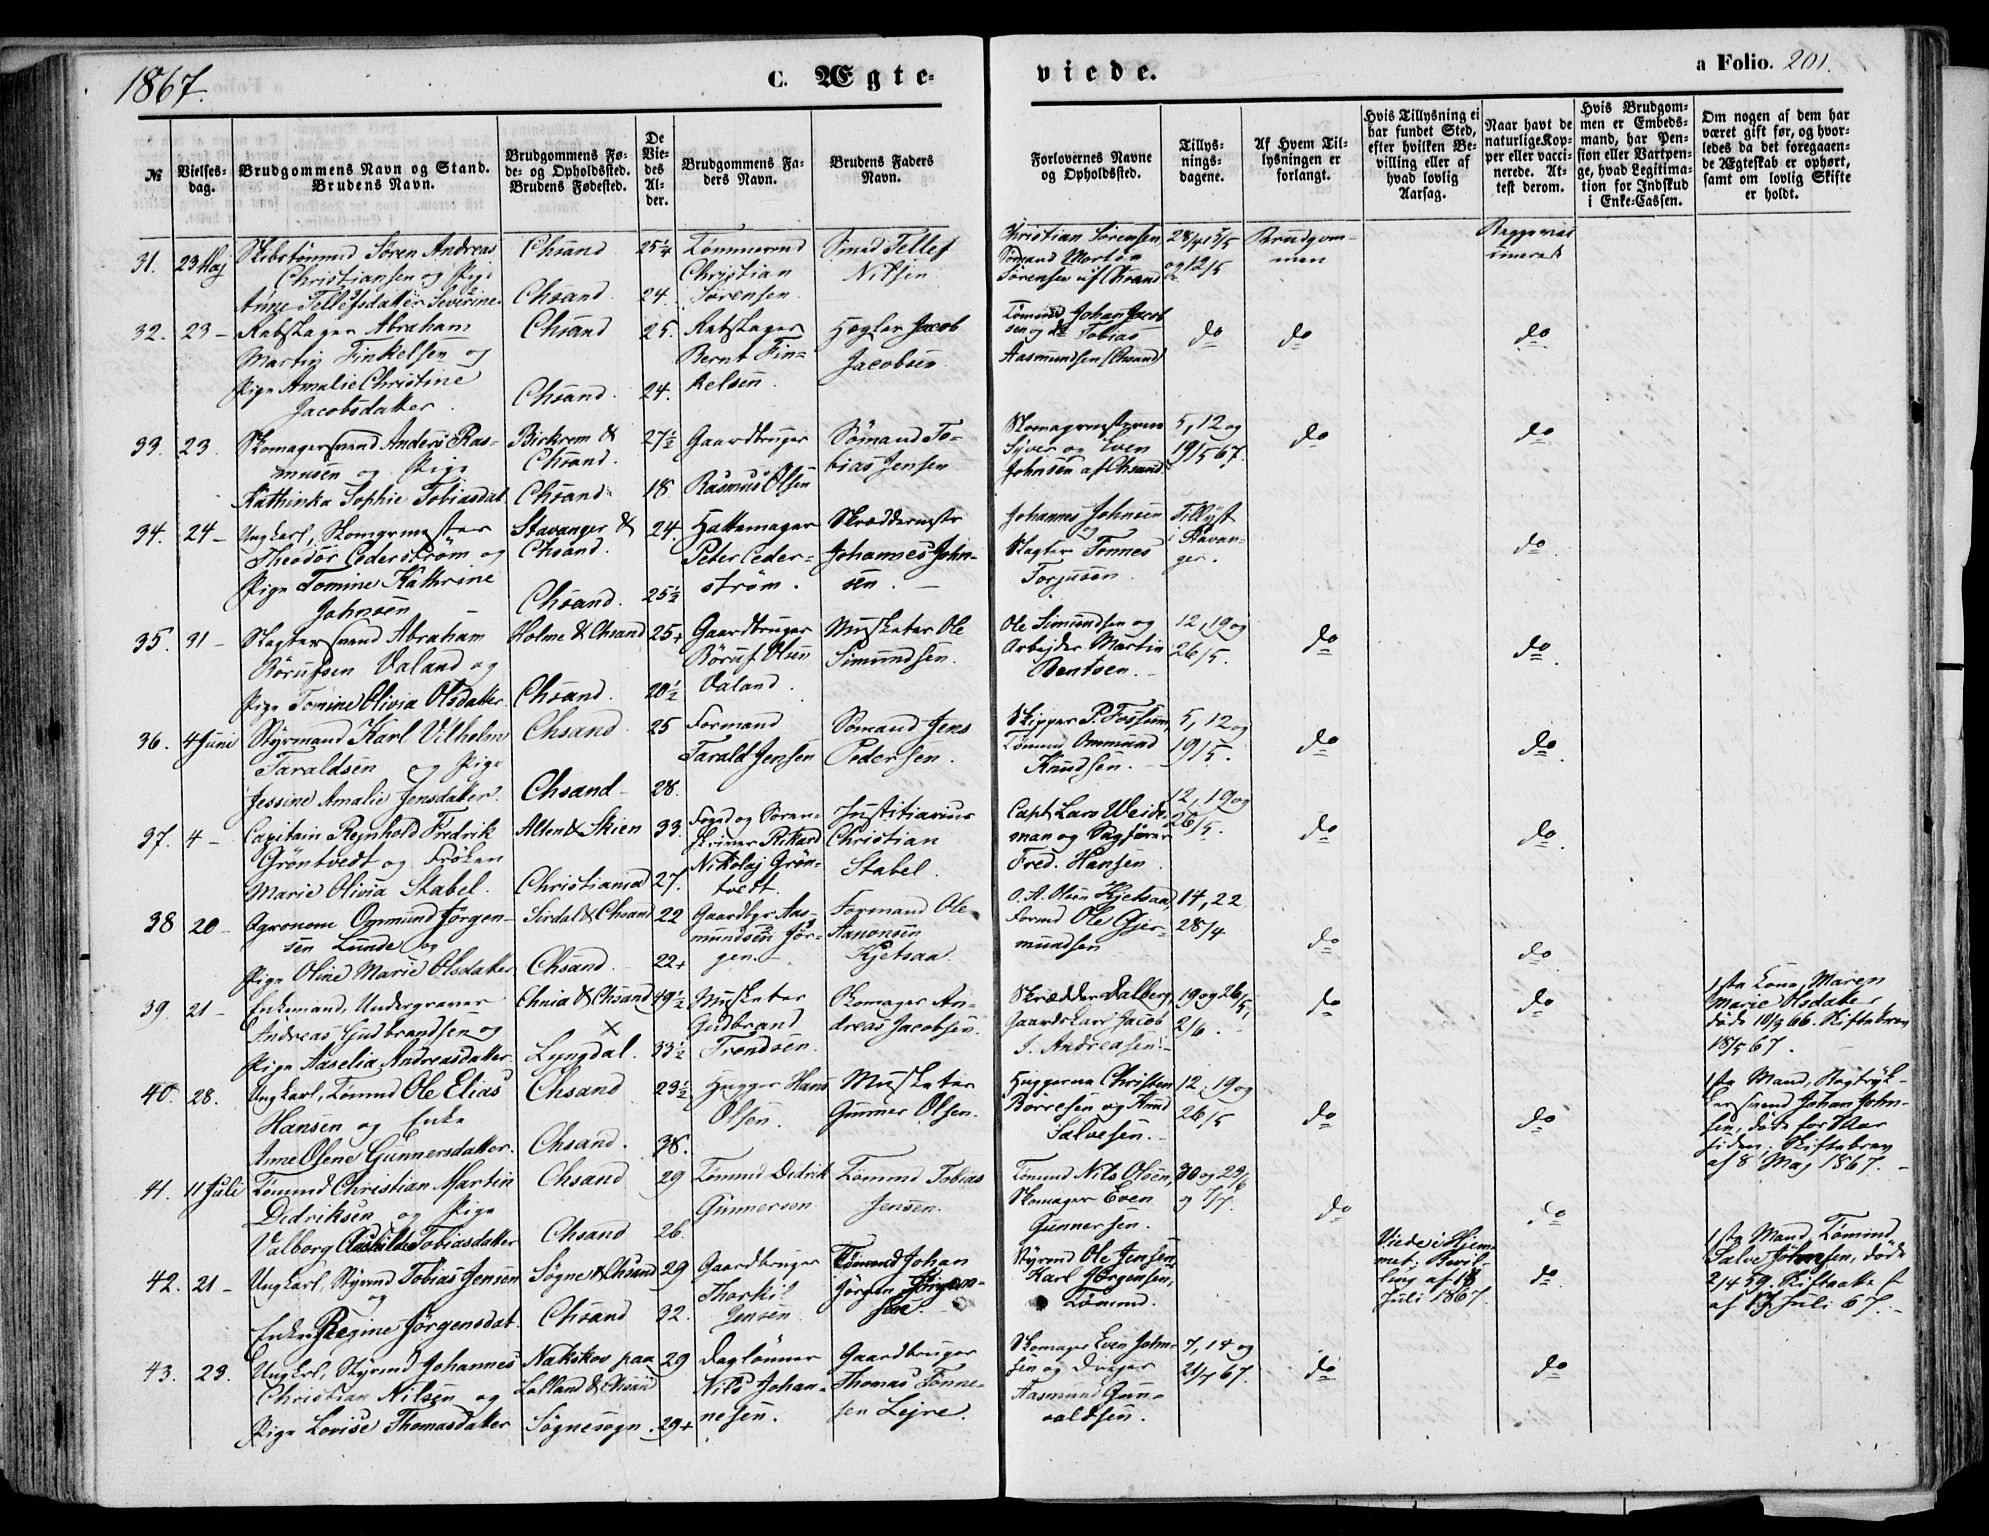 1867.
C. Ægte-
viede.
a Folio. 201.
№
Vielses-
dag.
Brudgommens Navn og Stand.
Brudens Navn.
Brudgommens Fø-
de- og Opholdssted.
Brudens Fødested.
De
Vie-
des
Al-
der.
Brudgommens Fa-
ders Navn.
Brudens Faders
Navn.
Forlovernes Navne
og Opholdssted.
Tillys-
nings-
dagene.
Af Hvem Til-
lysningen er
forlangt.
Hvis Tillysning ei
har fundet Sted,
efter hvilken Be-
villing eller af
hvad lovlig
Aarsag.
Naar havt de
naturlige Kop-
per eller vacci-
nerede. At-
test derom.
Hvis Brudgom-
men er Embeds-
mand, har Pen-
sion eller Vartpen-
ge, hvad Legitima-
tion for Indskud
i Enke-Cassen.
Om nogen af dem har
været gift før, og hvor-
ledes da det foregaaen-
de Ægteskab er ophørt,
samt om lovlig Skifte
er holdt.
31. 23 Maj
Skibstømmd Søren Andreas
Christiansen og Pige
Anne Tellefsdatter Severine
Chsand
Chsand
25¼
24.
Tømmermd
Christian
Sørensen
Smed Tellef
Nilsen
Christian Sørensen
Sømand Martin
Sørensen af Chsand
28/4 5/5
og 12/5
Brudgom-
men
32. 23 –
Rebslager Abraham
Martin Finkelsen og
Pige Amalie Christine
Jacobsdatter
Chsand
Chsand.
25.
24.
Rebslager
Bernt Fin-
kelsen.
Hegler Jacob
Jacobsen
Tømmd Johan Jacob
sen og do Tobias
Aasmundsen (Chsand)
do
do
do
33. 23.
Skomagersvend Anders Ras-
musen og Pige
Kathinka Sophie Tobiasdat
Birkrem &
Chsand.
Chsand
27½
18
Gaardbruger
Rasmus Olsen
Sømand To-
bias Jensen
Skomagermesterne
Syver og Even
Johnsen af Chsand
5, 12 og
19/5 67.
do
do
34. 24 –
Ungkarl, Skomgrmester
Theodor Cederstrøm og
Pige Tomine Kathrine
Johnsen
Stavanger &
Chsand.
Chsand.
24.
25½
Hattemager
Peter Ceder-
strøm.
Skræddermstr
Johannes John-
sen.
Johannes Johnsen
og
Slagter Tønnes
Torjusen.
Tillyst
i Stavan-
ger.
do
35. 31 –
Slagtersvend Abraham
Børufsen Valand og
Pige Tomine Olivia Olsdatter
Holme & Chsand
Chsand.
25+
20½
Gaardbruger
Børuf Olsen
Valand.
Musketer Ole
Simundsen.
Ole Simundsen og
Arbejder Martin
Bentsen.
12, 19 og
26/5.
do
do
36. 4 Juni
Styrmand Karl Vilhelm
Taraldsen og Pige
Jessine Amalie Jensdatter.
Chsand
Chsand
25
28.
Formand
Tarald Jensen
Sømand Jens
Pedersen.
Skipper P. Fossum,
Tømmd Ommund
Knudsen.
5, 12 og
19/5.
do
do
37. 4 –
Capitain Reinhold Fredrik
Grøntvedt og Frøken
Marie Olivia Stabel.
Alten & Skien
Christiania
33.
27.
Foged og Soren-
skriver Rikard
Nikolaj Grøn-
tvedt.
Justitiarius
Christian
Stabel.
Capt Lars Weide-
man og Sagfører
Fred. Hansen.
12, 19 og
26/5.
do
do
38 20 –
Agronom Ommund Jørgen-
sen Lunde og
Pige Oline Marie Olsdatter
Sirdal & Chsand
Chsand.
22
22+
Gaardbgr Aas-
mundsen Jør-
gen.
Formand Ole
Aanonsen
Kjetsaa.
O. A. Olsen Kjetsaa,
Formd Ole Gjer-
mundsen
14, 22
28/4
do
do
39. 21 –
Enkemand, Undergraver
Andreas Gudbrandsen og
Pige Aaselia Andreasdatter.
Chnia & Chsand
×
Lyngdal.
49½
33½
Musketer
Gudbrand
Trondsen.
Skomager An-
dreas Jacobsen.
Skrædder Dalberg,
Gaardskarl Jacob
J. Andreasen.
19 og 26/5,
2/6.
do
do
1ste Kone, Maren
Marie Olsdatter
døde 10/3 66. Skiftebrev
18/5 67.
40. 28.
Ungkarl, Tømmd Ole Elias
Hansen og Enke
Anne Olene Gunnersdatter.
Chsand
Chsand.
23½
38.
Hugger Hans
Olsen.
Musketer
Gunner Olsen.
Huggerne Christen
Børresen og Knud
Salvesen.
12, 19 og
26/5
do
do
1ste Mand, Bogtryk-
kersvend Johan John-
sen, døde for 7 Aar
siden. Skiftebrev
af 8 Maj 1867.
41. 11 Juli
Tømmd Christian Martin
Didriksen og Pige
Valborg Aashilde Tobiasdatter
Chsand
Chsand
29
26.
Tømmd Didrik
Gunnersen
Tømmd Tobias
Jensen.
Tømmd Nils Olsen,
Skomager Even
Gunnersen.
og 7/7.
do
do
42. 21 –
Ungkarl, Styrmd Tobias Jensen
og
Enke Regine Jørgensdat.
Søgne & Chsand
Chsand
29
32.
Gaardbruger
Thorkil
Jensen
Tømmd Johan
Jørgen Jørgen-
sen.
Styrmd Ole Jensen,
Karl Jørgensen,
Tømmd.
Viede i Hjem-
met; Bevil-
ling af 18
Juli 1867.
do
1ste Mand, Tømmd
Salve Johnsen, døde
2/4 59. Skifteattest
af 13 Juli 67.
43. 23.
Ungkrl, Styrmd Johannes
Christian Nilsen og
Pige Lovise Thomasdatter
Nakskov paa
Lolland & Chsand
Søgnesogn.
29
29+
Daglønner
Nils Johan-
nesen.
Gaardbruger
Thomas Tønne-
sen Lejre.
Skomager Even John-
sen og Drejer
Aasmund Gun-
valdsen.
7, 14 og
21/7 67.
do
do